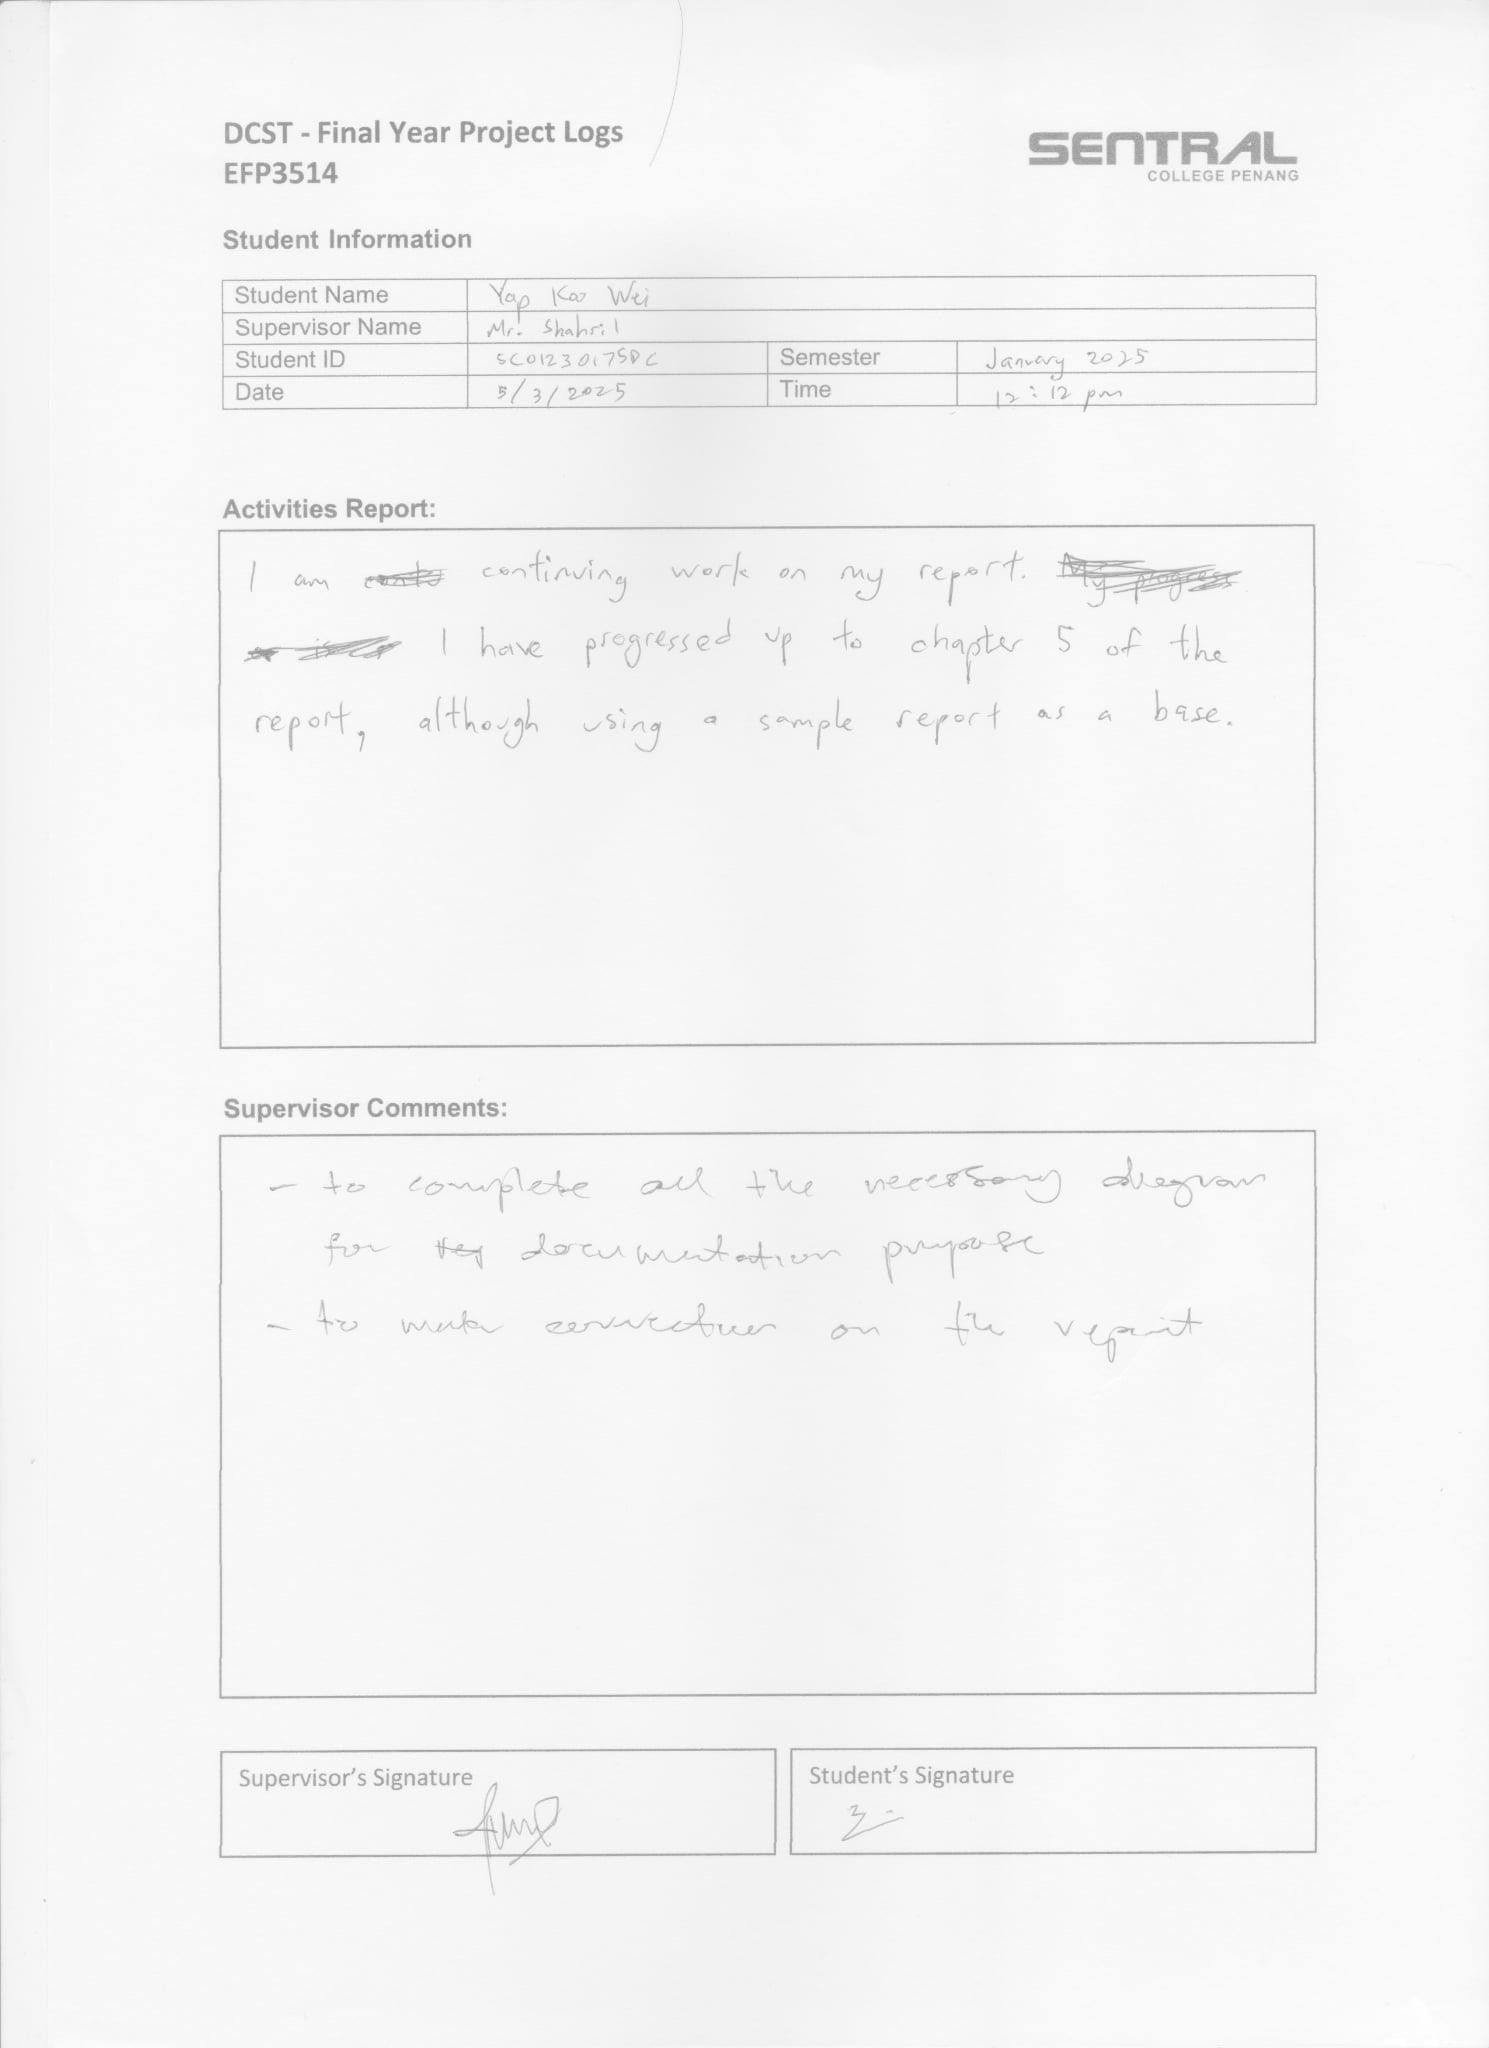 DCST - Final Year Project Logs
EFP3514
SENTRAL
COLLEGE PENANG
Student Information
Student Name Yap Wei
Supervisor Name Mr. Shahril
Student ID SC01230175DC Semester January 2025
Date 5/3/2025 Time 12:12 pm
Activities Report:
I am continuing work on my report. My progress
I have progressed up to chapter 5 of the
report, although using a sample report as a base.
Supervisor Comments:
- to complete all the necessary diagram
for documentation purpose
- to make correction on the report
Supervisor's Signature
Student's Signature